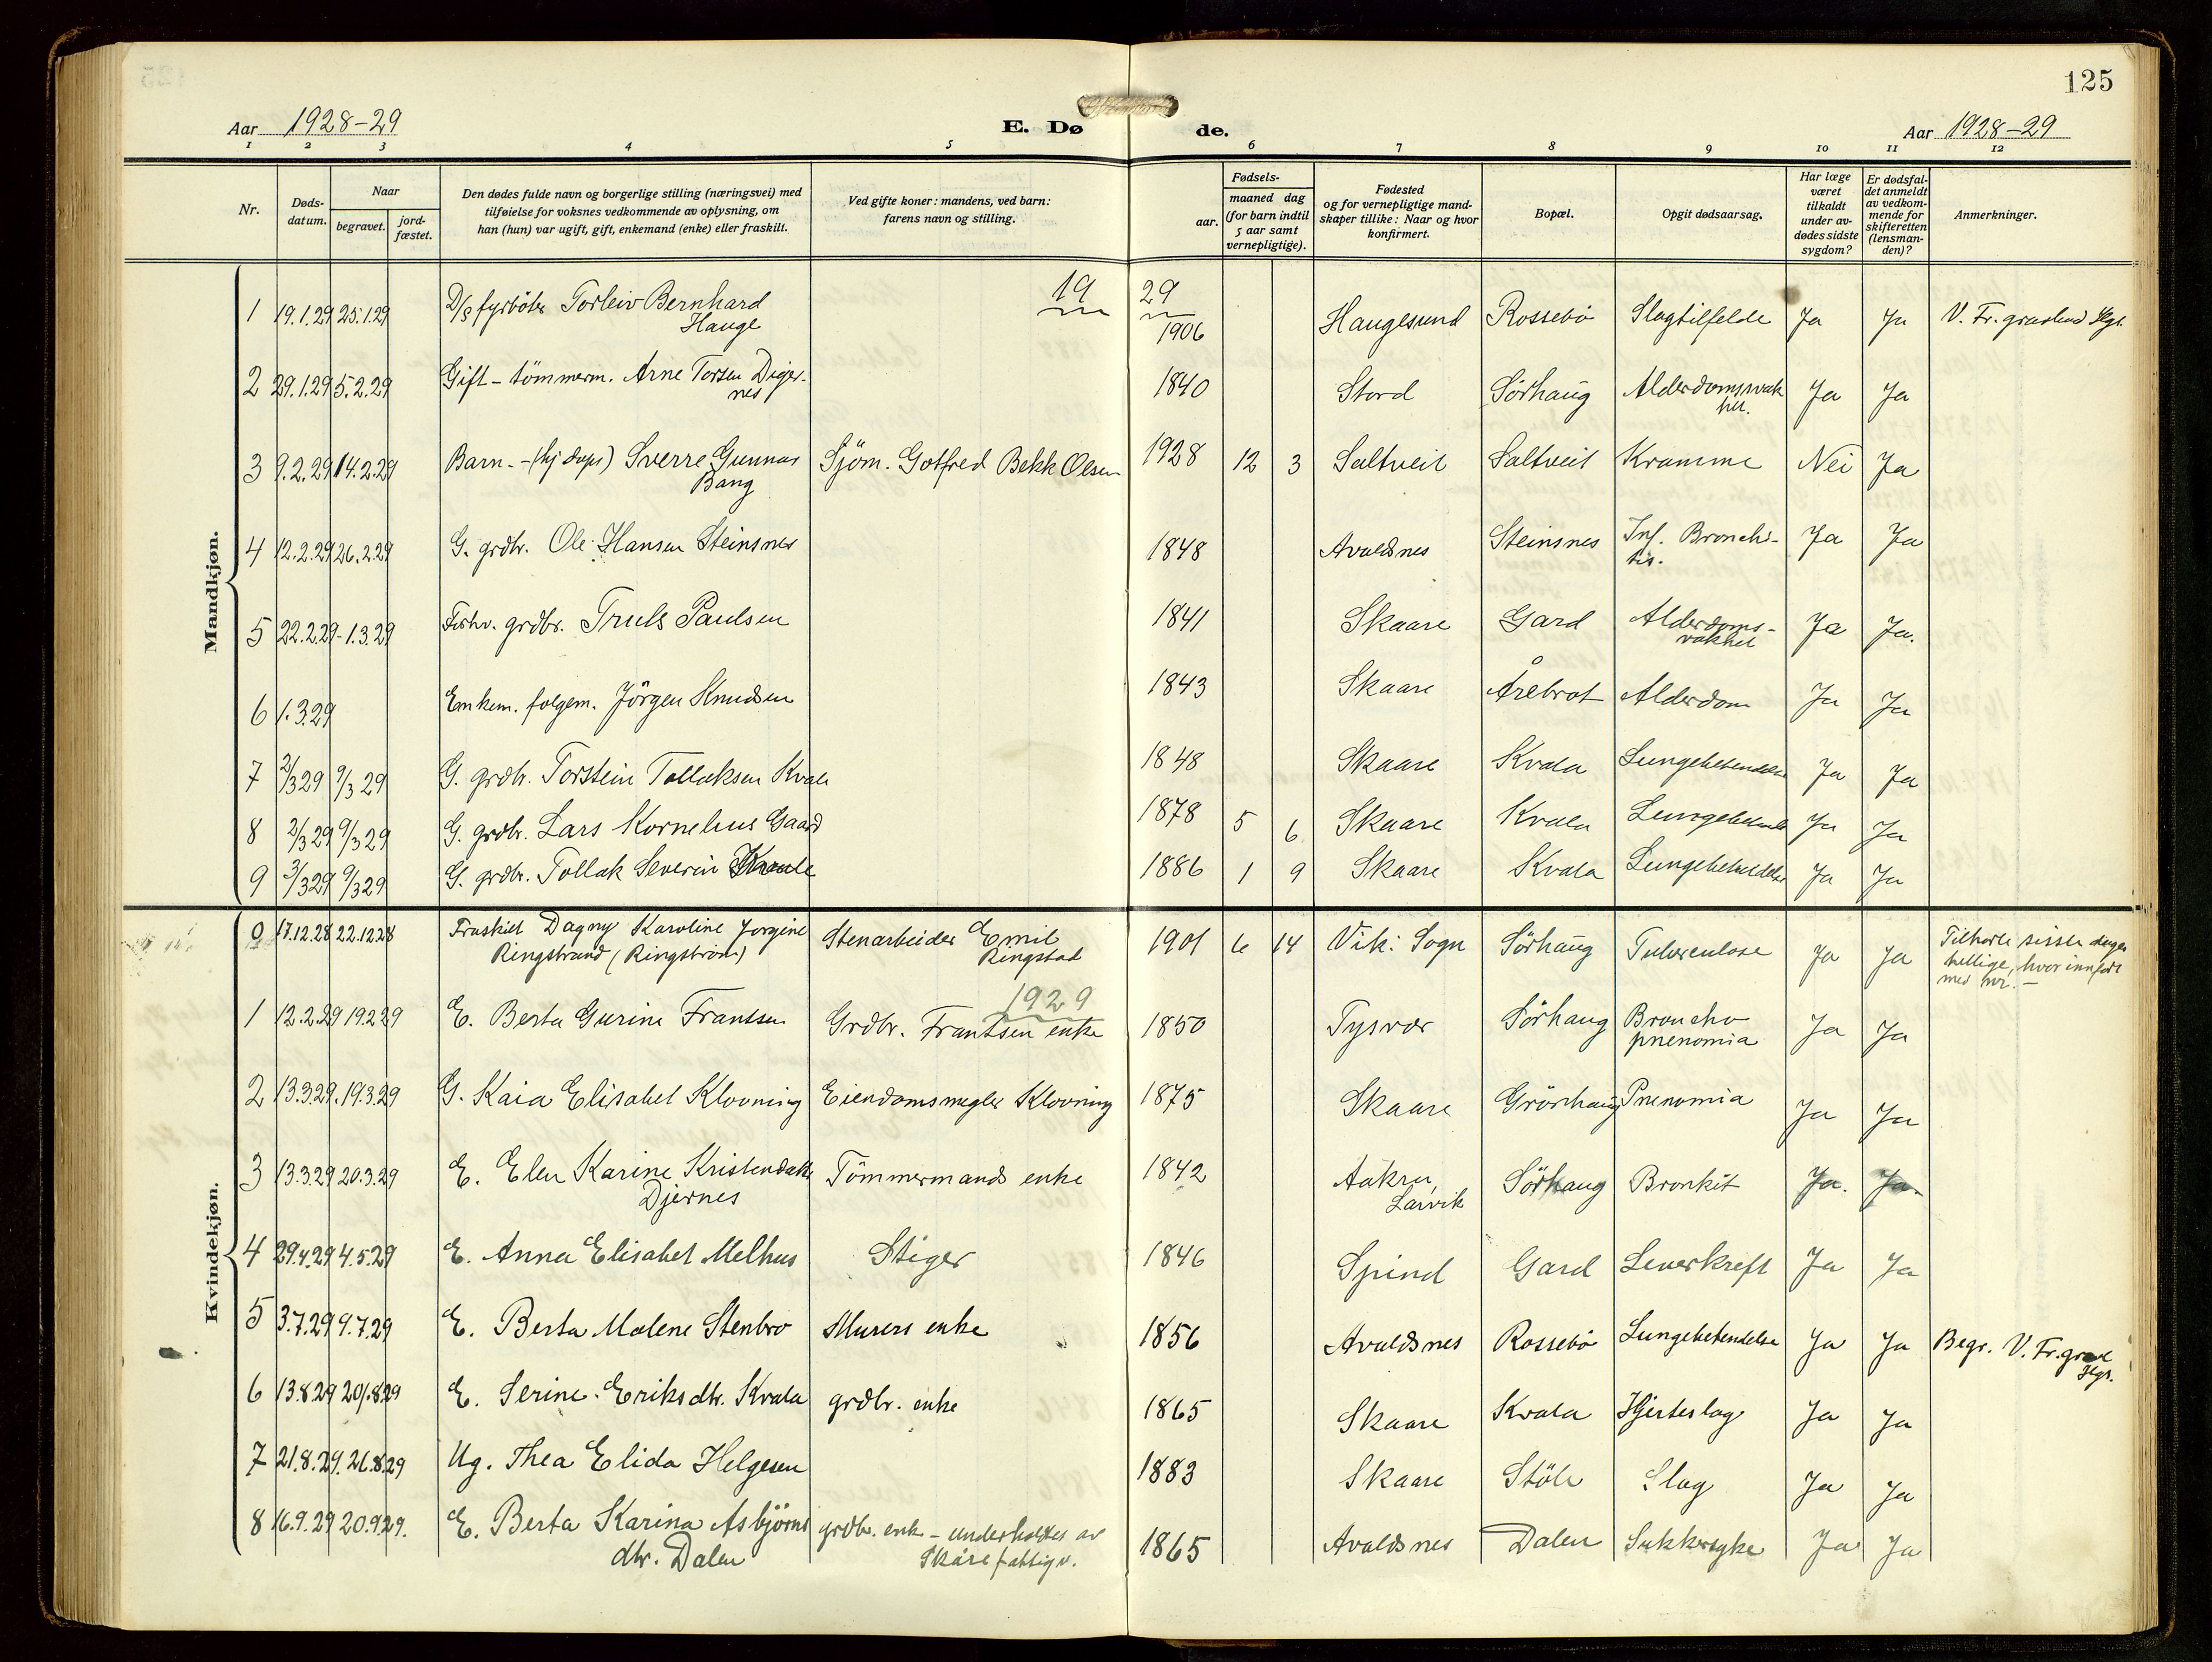 125
Aar 1928-29 E. Dø de. Aar 1928-29
1 2 3 4 5 6 7 8 9 10 11 12
Nr.
Døds-
datum.
Naar
begravet.
jord-
fæstet.
Den dødes fulde navn og borgerlige stilling (næringsvei) med
tilføielse for voksnes vedkommende av oplysning, om
han (hun) var ugift, gift, enkemand (enke) eller fraskilt.
Ved gifte koner: mandens, ved barn:
farens navn og stilling.
Fødsels-
aar.
maaned dag
(for barn indtil
5 aar samt
vernepligtige).
Fødested
og for vernepligtige mand-
skaper tillike: Naar og hvor
konfirmert.
Bopæl.
Opgit dødsaarsag.
Har læge
været
tilkaldt
under av-
dødes sidste
sygdom?
Er dødsfal-
det anmeldt
av vedkom-
mende for
skifteretten
(lensman-
den)?
Anmerkninger.
Mandkjøn.
19 29
1 19.1.29 25.1.29 D/s fyrböter Torleiv Bernhard 1906 Haugesund Rossebö Slagtilfelde Ja Ja V. Fr. gravlund Hgs.
Hauge
2 29.1.29 5.2.29 Gift - tömmerm. Arne Torsen Diger- 1840 Stord Sörhaug Alderdomssvak Ja Ja
nes
het.
3 9.2.29 14.2.29 Barn. - (hj døpt) Sverre Gunnar Sjöm. Gotfred Bekk Olsen 1928 12 3 Saltveit Saltveit Kramme Nei Ja
Bang
4 12.2.29 26.2.29 G. grdbr. Ole Hansen Steinsnes 1848 Avaldsnes Steinsnes Inf. Bronchi- Ja Ja
tis.
5 22.2.29 - 1.3.29 Forhv. grdbr. Truls Paulsen 1841 Skaare Gard Alderdoms- Ja Ja.
vakhet
6 1.3.29 Enkem. folgem. Jörgen Knudsen 1843 Skaare Årebrot Alderdom Ja Ja
7 2/3 29 9/3 29 G. grdbr. Torstein Tollaksen Kvale 1848 Skaare Kvala Lungebetendelse Ja Ja
8 2/3 29 9/3 29 G. grdbr. Lars Kornelius Gaard 1878 5 6 Skaare Kvala Lungebetendelse Ja Ja
9 3/3 29 9/3 29 G. grdbr. Tollak Severin Kvale 1886 1 9 Skaare Kvala Lungebetendelse Ja Ja
Kvindekjøn.
0 17.12.28 22.12.28 Fraskilt Dagny Karoline Jorgine Stenarbeider Emil 1901 6 14 Vik: Sogn Sörhaug Tuberculose Ja Ja Tilhørte sisste dagers
Ringstrand (Ringström) Ringstad
hellige, hvor innført
med nr. -
1929
1 12.2.29 19.2.29 E. Berta Gurine Frantsen Grdbr. Frantsen enke 1850 Tysvær Sörhaug Broncho Ja Ja
pnenomia
2 13.3.29. 19.3.29 G. Kaia Elisabet Klovning Eiendomsmegler Klovning 1875 Skaare Grönhaug Pnenomia Ja Ja
3 13.3.29 20.3.29 E. Elen Karine Kristendatter Tömmermands enke 1842 Aakra, Sörhaug Bronkit Ja. Ja.
Djernes Larvik
4 29.4.29 4.5.29 E. Anna Elisabet Melhus Stiger 1846 Spind Gard Leverkreft Ja Ja
5 3.7.29 9.7.29 E. Berta Malene Stenbro Murers enke 1856 Avaldsnes Rossebö Lungebetendelse Ja Ja Begr. V. Fr. grav
Hgs.
6 13.8.29 20/.8.29 E. Serine Eriksdtr. Kvala grdbr. enke 1865 Skaare Kvala Hjerteslag Ja Ja
7 21.8.29. 26.8.29 Ug. Thea Elida Helgesen 1883 Skaare Stöle Slag Ja Ja
8 16.9.29 20.9.29. E. Berta Karina Asbjörns grdbr. enke - underholdes av 1865 Avaldsnes Dalen Sukkersyke Ja Ja
dtr. Dalen Skåre fattigv.